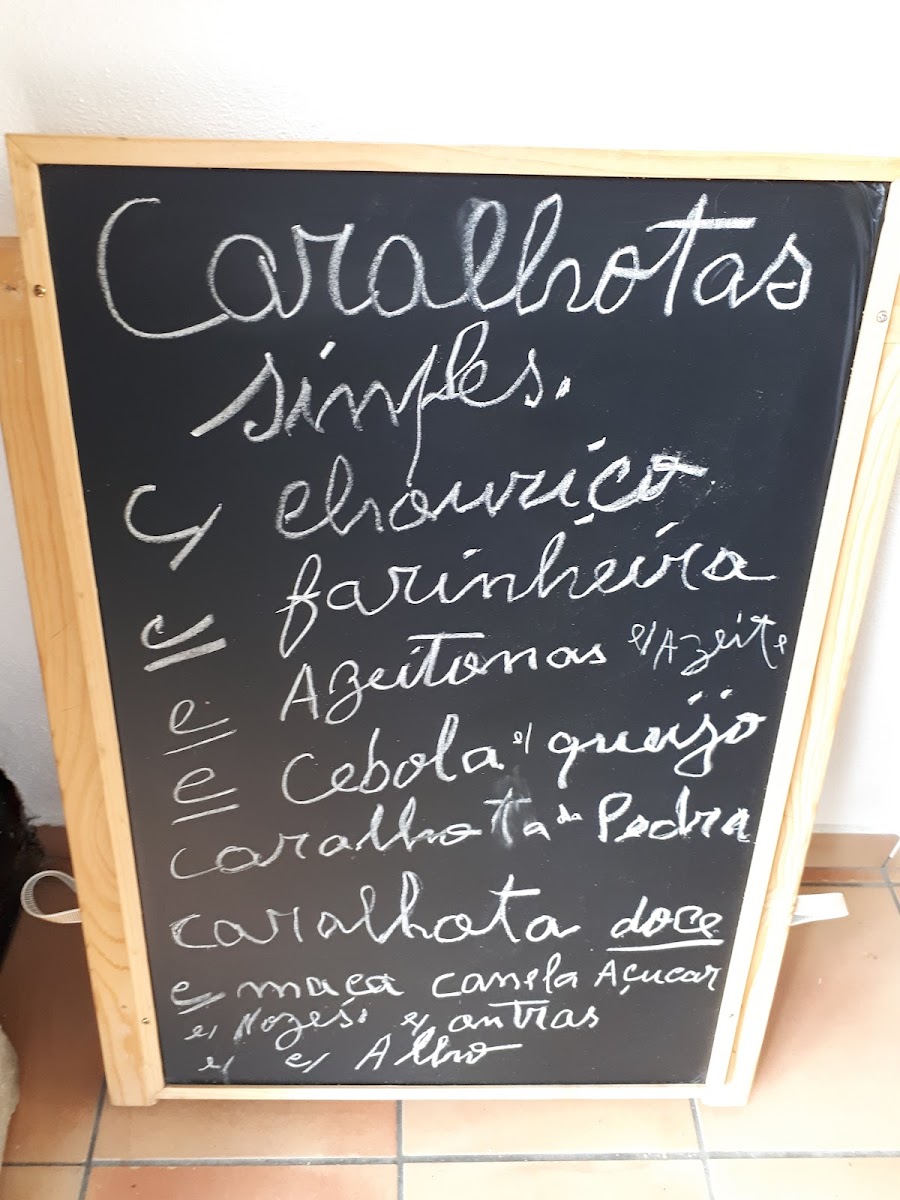 Caralhotas
simples.
c/ chouriço
c/ farinheira
c/ Azeitonas c/ Azeite
c/ Cebola c/ queijo
caralhota da Pedra
caralhota doce
c/ maça canela Açucar
c/ Nozes. c/ outras
c/ c/ Alho